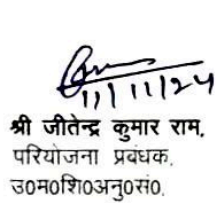 11/11/24
श्री जीतेन्द्र कुमार राम,
परियोजना प्रबंधक,
उ0म0शि0अनु0सं0,